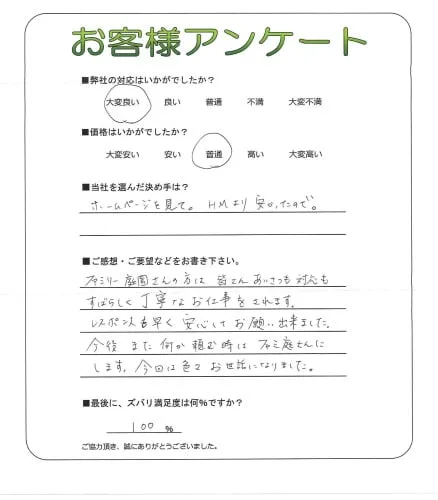 お客様アンケート
■弊社の対応はいかがでしたか？
大変良い 良い 普通 不満 大変不満
■価格はいかがでしたか？
大変安い 安い 普通 高い 大変高い
■当社を選んだ決め手は？
ホームページを見て。HMより安かったので。
■ご感想・ご要望などをお書き下さい。
ファミリー庭園さんの方は皆さんあいさつも対応も
すばらしく丁寧なお仕事をされます。
レスポンスも早く安心してお願い出来ました。
今後また何か頼む時はファミ庭さんに
します。今回は色々お世話になりました。
■最後に、ズバリ満足度は何%ですか？
100 %
ご協力頂き、誠にありがとうございました。